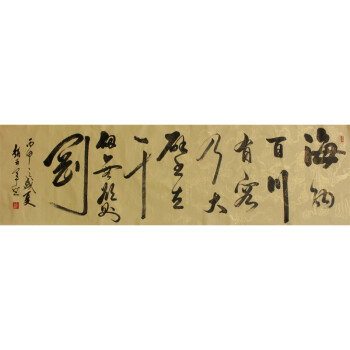 海纳
百川
有容
乃大
壁立
千
仞无欲则
刚
丙申之盛夏